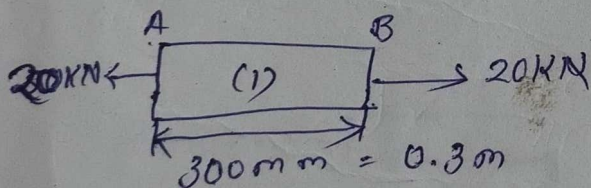 A B
20KN (1) 20KN
300mm = 0.3m